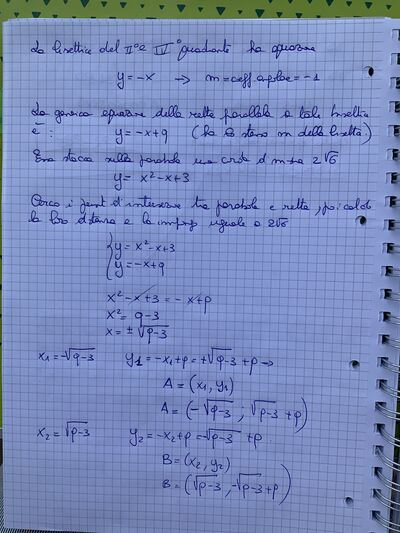 La bisettrice del II° e IV° quadrante ha equazione
y = -x → m = coeff angolare = -1
La generica equazione della retta parallela a tale bisettrice
è : y = -x+q (ha lo stesso m della bisettrice)
Essa stacca sulla parabola una corda di misura 2√6
y = x²-x+3
Cerco i punti d'intersezione tra parabola e retta, poi calcolo
la loro distanza e la impongo uguale a 2√6
{ y = x²-x+3
y = -x+q
x²-x+3 = -x+q
x² = q-3
x = ±√q-3
x₁ = -√q-3 y₁ = -x₁+q = +√q-3 +q →
A = (x₁, y₁)
A = (-√q-3 ; √q-3 +q)
x₂ = √q-3 y₂ = -x₂+q = -√q-3 +q
B = (x₂, y₂)
B = (√q-3, -√q-3+q)